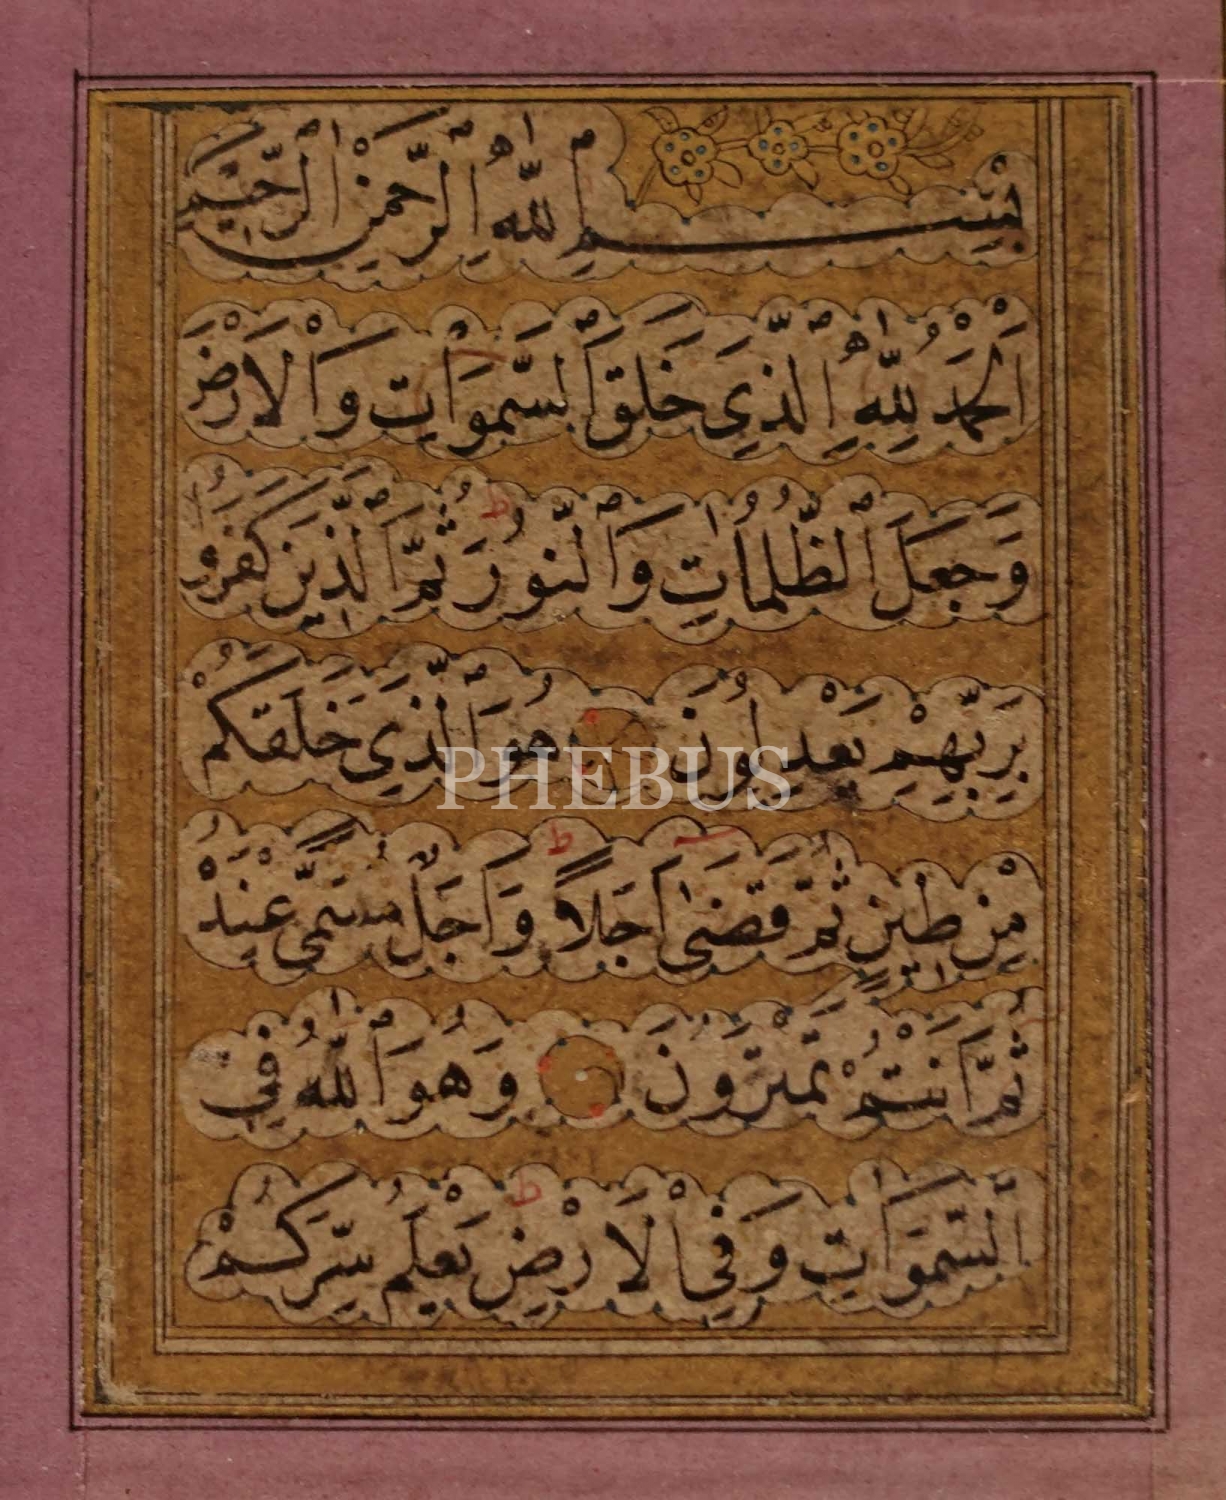 بِسْمِ اللّٰهِ الرَّحْمٰنِ الرَّحِيمِ
اَلْحَمْدُ لِلّٰهِ الَّذِي خَلَقَ السَّمٰوَاتِ وَالْاَرْضَ
وَجَعَلَ الظُّلُمَاتِ وَالنُّورَ ط ثُمَّ الَّذِينَ كَفَرُو
بِرَبِّهِمْ يَعْدِلُونَ هُوَ الَّذِي خَلَقَكُمْ
PHEBUS
مِنْ طِينٍ ثُمَّ قَضٰى اَجَلًا ط وَاَجَلٌ مُسَمًّى عِنْدَهُ
ثُمَّ اَنْتُمْ تَمْتَرُونَ وَهُوَ اللّٰهُ فِي
السَّمٰوَاتِ وَفِي الْاَرْضِ ط يَعْلَمُ سِرَّكُمْ